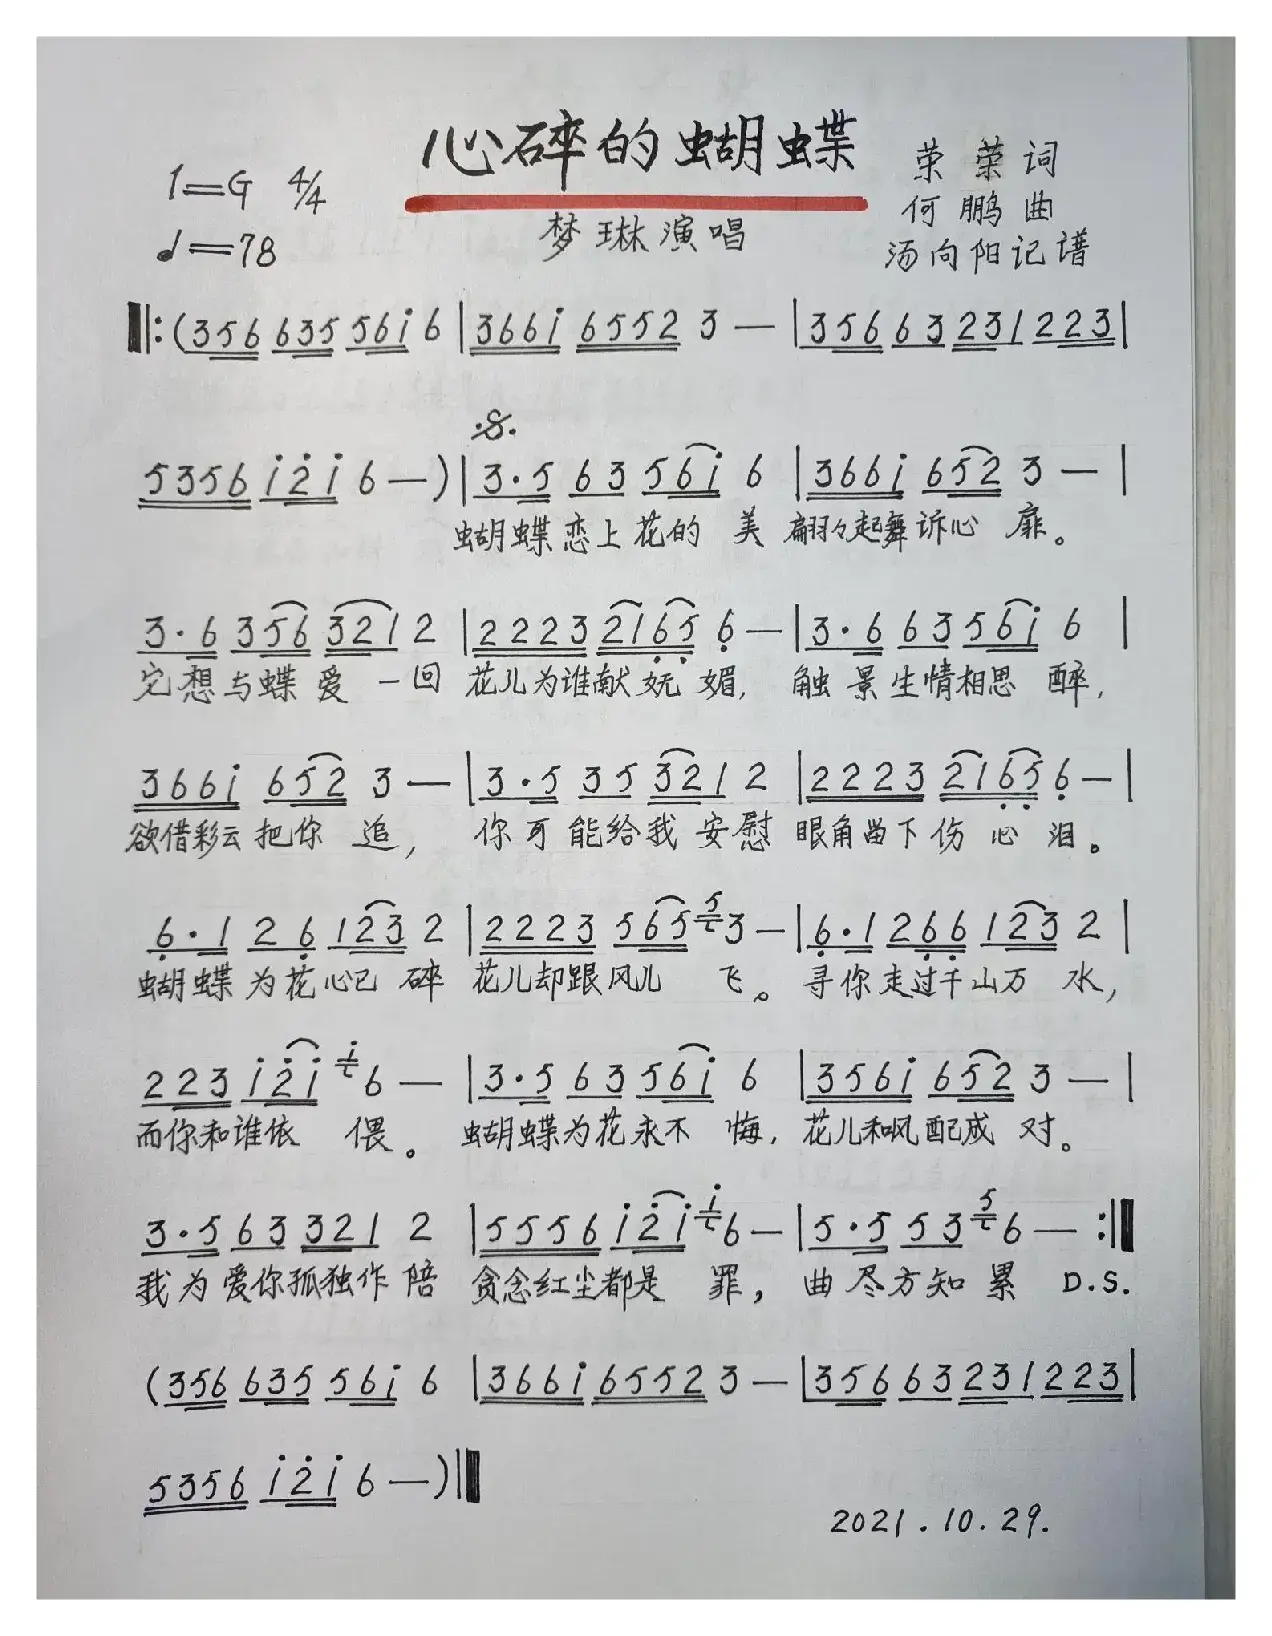 心碎的蝴蝶
1=G 4/4
♩=78
梦琳演唱
荣荣词
何鹏曲
汤向阳记谱
‖:(356 635 56i 6 | 366i 6552 3 — | 356 63 231 223 |
5356 i2i 6 —) | 3·5 63 56i 6 | 366i 652 3 — |
蝴蝶恋上花的 美 翩々起舞诉心 扉。
3·6 356 321 2 | 2223 2165 6 — | 3·6 63 56i 6 |
它想与蝶爱 一回 花儿为谁献妩 媚, 触景生情相思 醉,
366i 652 3 — | 3·5 35 321 2 | 2223 2165 6 — |
欲借彩云把你 追, 你可能给我 安慰 眼角留下伤 心 泪。
6·1 26 123 2 | 2223 565 5 3 — | 6·1 266 123 2 |
蝴蝶为花心已 碎 花儿却跟风儿 飞。 寻你走过千山万 水,
223 i2i i 6 — | 3·5 63 56i 6 | 356i 652 3 — |
而你和谁依 偎。 蝴蝶为花永不 悔, 花儿和风配成 对。
3·5 63 321 2 | 5556 i2i i 6 — | 5·5 53 5 6 — :‖
我为爱你孤独作 陪 贪念红尘都是 罪, 曲尽方知 累 D.S.
(356 635 56i 6 | 366i 6552 3 — | 356 63 231 223 |
5356 i2i 6 —)‖
2021.10.29.